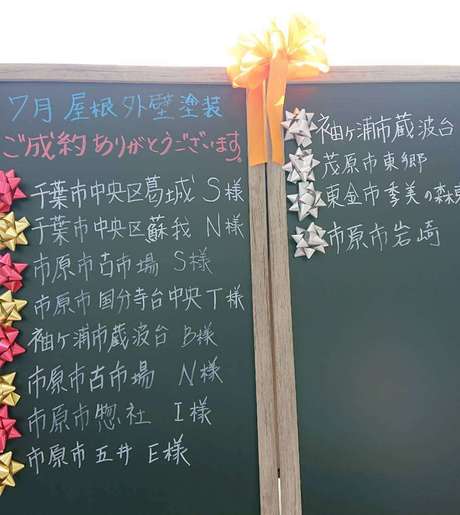 7月 屋根外壁塗装
ご成約ありがとうございます。
千葉市中央区葛城 S様
千葉市中央区蘇我 N様
市原市古市場 S様
市原市国分寺台中央T様
袖ケ浦市蔵波台 B様
市原市古市場 N様
市原市惣社 I様
市原市五井 E様
袖ケ浦市蔵波台
茂原市東郷
東金市季美の森東
市原市岩崎